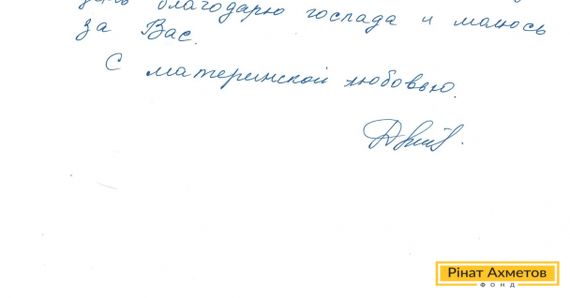 день благодарю господа и молюсь
за Вас.
С материнской любовью.
Рінат Ахметов
ФОНД